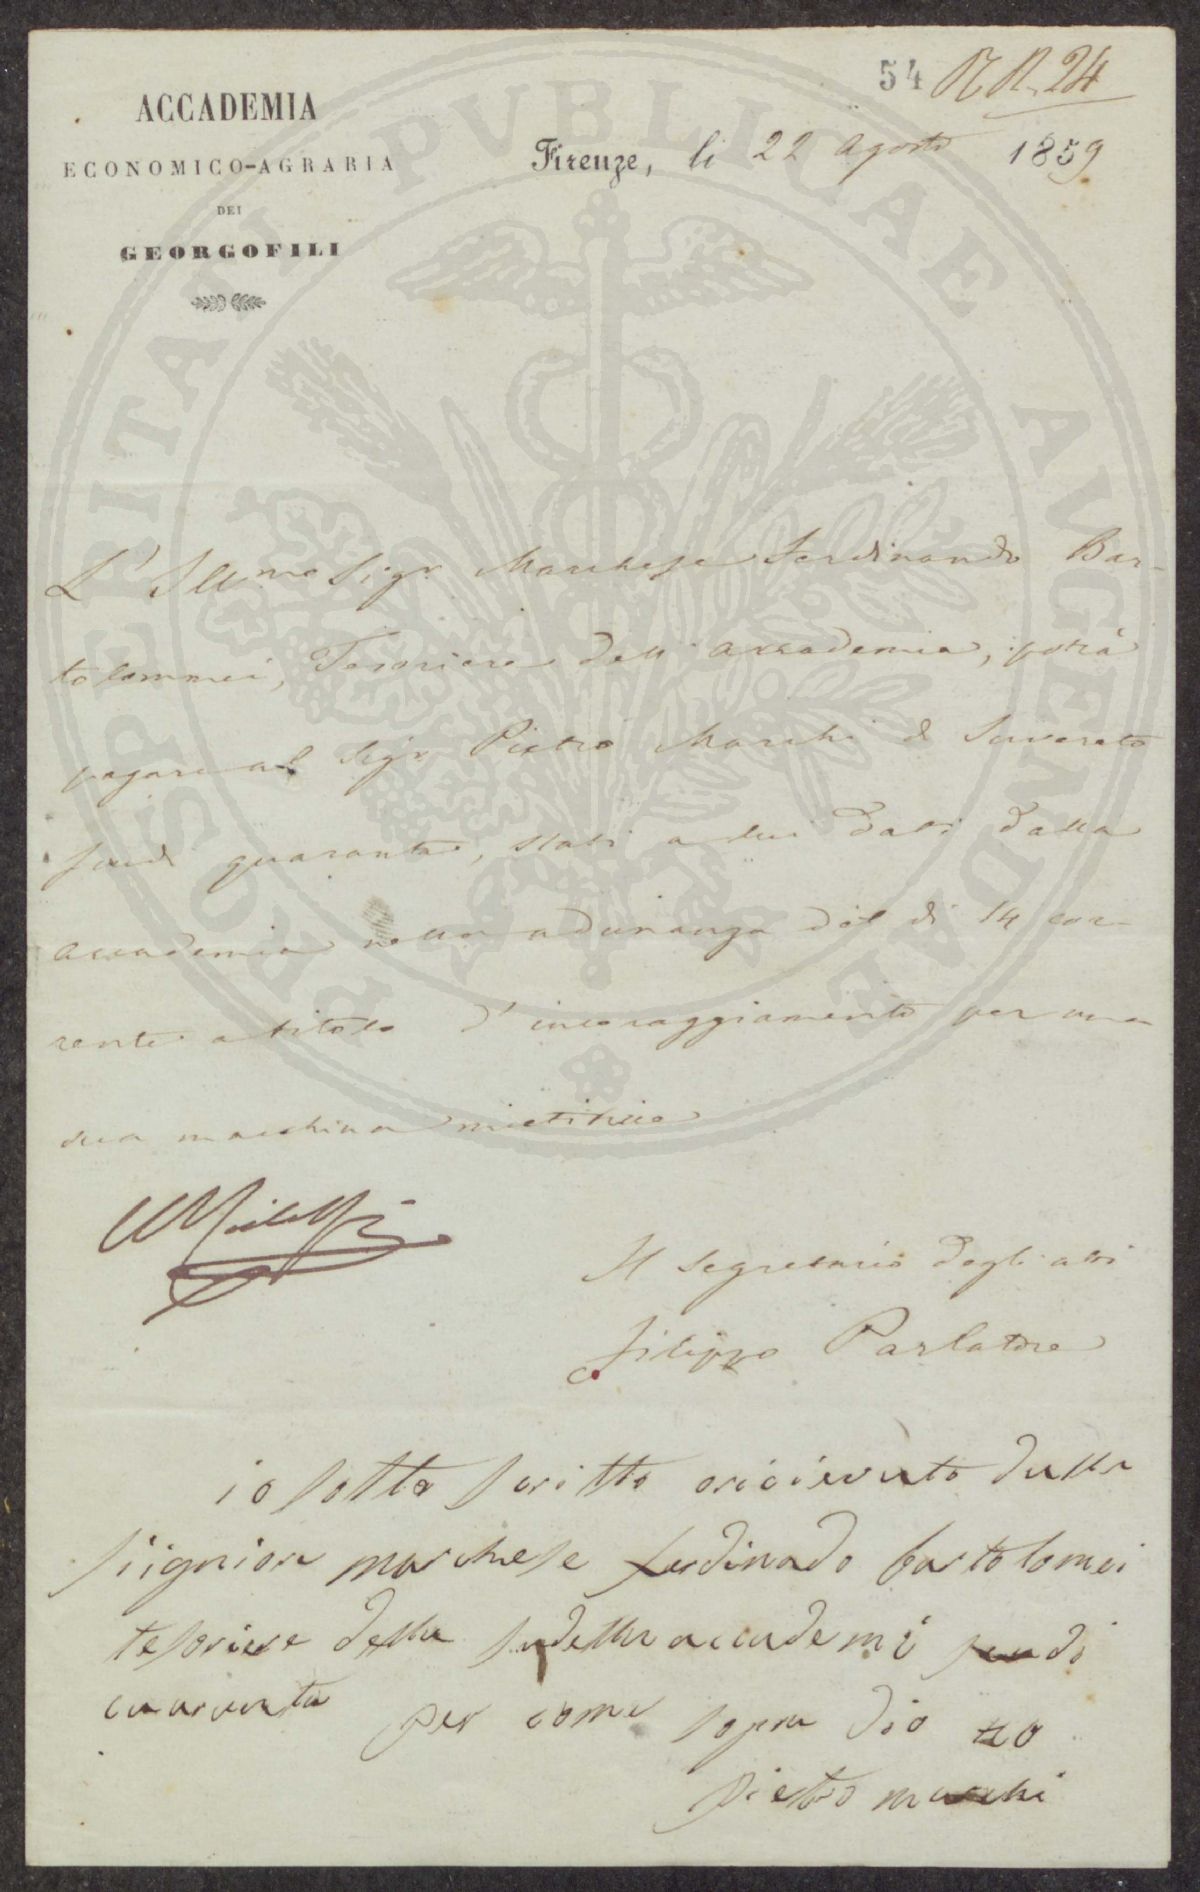 54 N. R. 24
ACCADEMIA
ECONOMICO-AGRARIA
DEI
GEORGOFILI
Firenze, li 22 Agosto 1859
PROSPERITATI PVBLICAE AVGENDAE
L' Illmo Sigr Marchese Ferdinando Bar-
tolommei, Tesoriere dell' accademia, potrà
pagare al Sigr Pietro Marchi di Suvereto
scudi quaranta, stati a lui dati dalla
accademia nella adunanza del dì 14 cor-
rente a titolo d' incoraggiamento per una
sua macchina mietitrice
Il segretario degli atti
Filippo Parlatore
io sotto scritto o ricievuto dalla
signiore marchese ferdinado bartolomei
tesoriere della sudetta accademi scudi
cuaranta per come sopra dio
pietro marchi